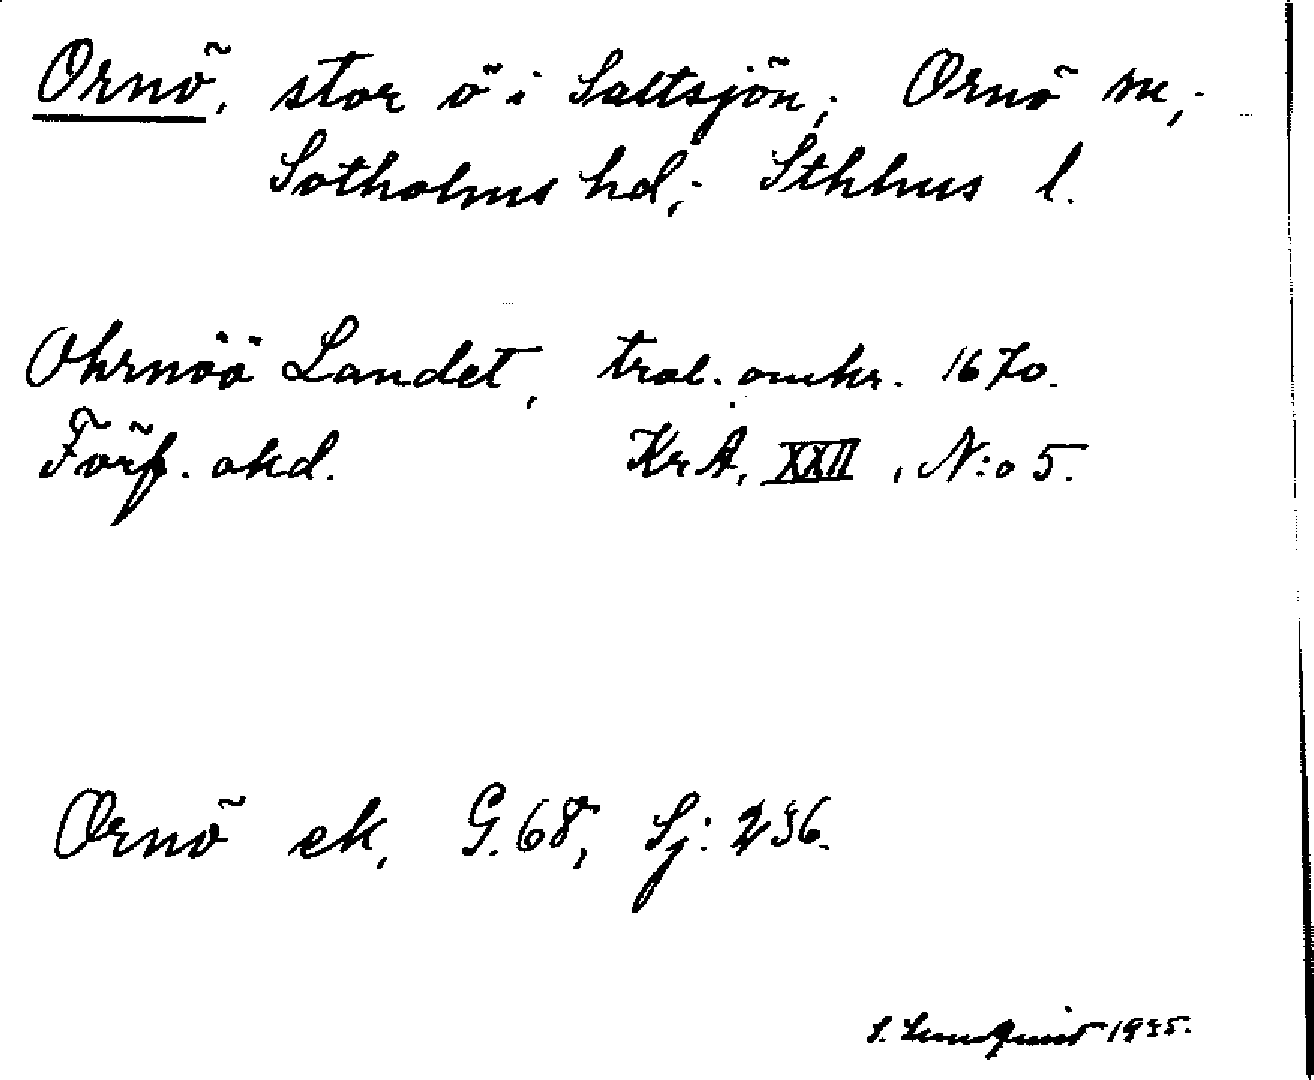 Ornö, stor ö i Saltsjön; Ornö sn,
Sotholms hd; Sthlms l.
Ohrnöö Landet, trol. omkr. 1670.
Förf. okd. KrA, XXII, N:o 5.
Ornö ek, G. 68, Sj: 236.
S. Lundquist 1935.